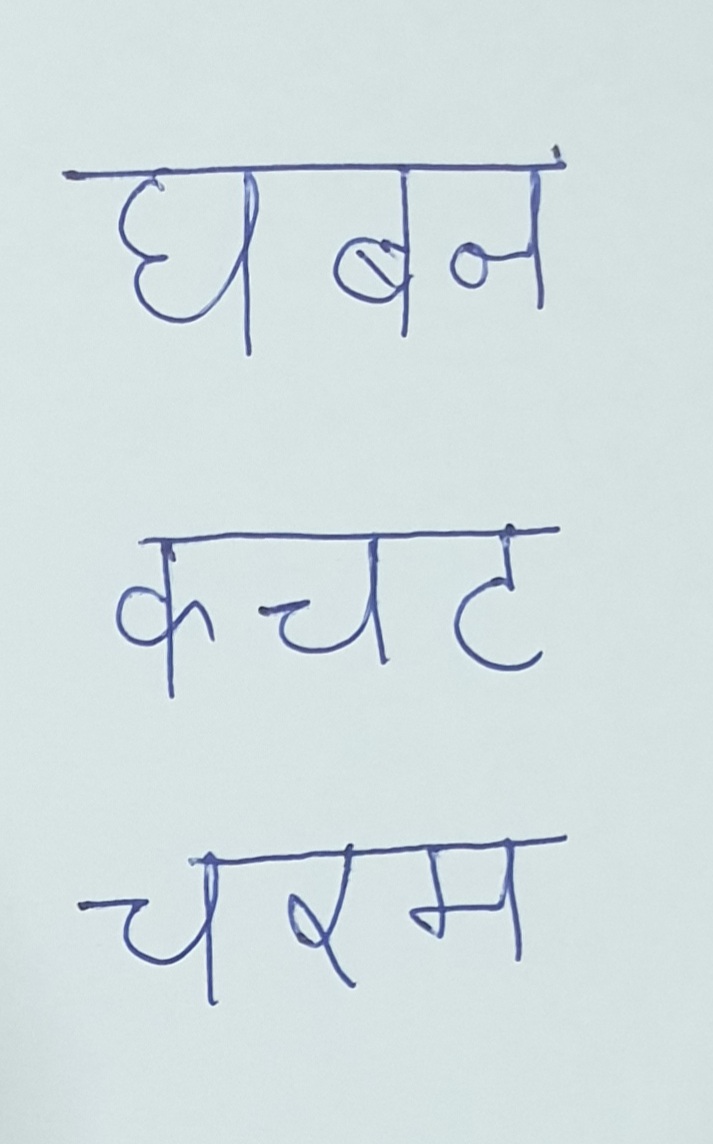 घबन
कचट
चरम